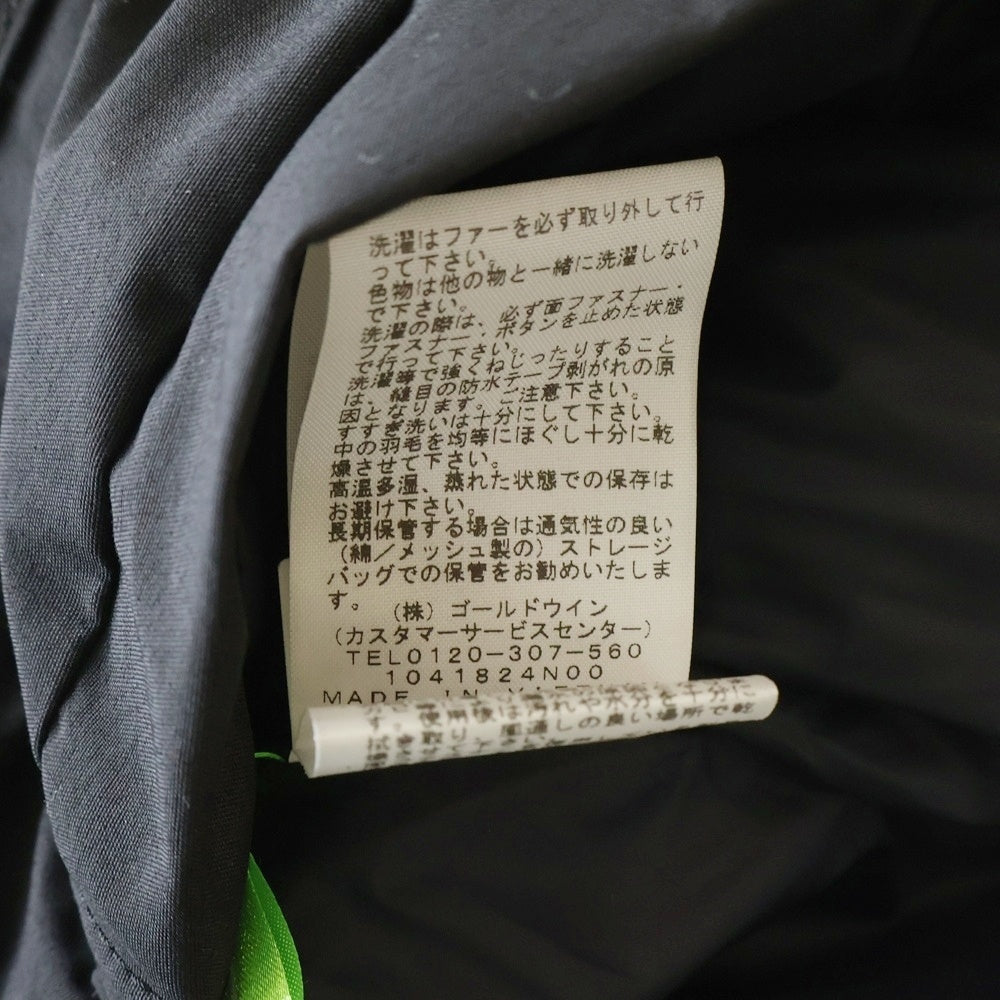 洗濯はファーを必ず取り外して行
って下さい。
色物は他の物と一緒に洗濯しない
で下さい。
洗濯の際は、必ず面ファスナー・
ファスナー・ボタンを止めた状態
で行って下さい。
洗濯等で強くねじったりすること
は、縫目の防水テープ剥がれの原
因となります。ご注意下さい。
すすぎ洗いは十分にして下さい。
中の羽毛を均等にほぐし十分に乾
燥させて下さい。
高温多湿、蒸れた状態での保存は
お避け下さい。
長期保管する場合は通気性の良い
（綿／メッシュ製の）ストレージ
バッグでの保管をお勧めいたしま
す。
（株）ゴールドウイン
（カスタマーサービスセンター）
TEL0120-307-560
1041824N00
MADE IN